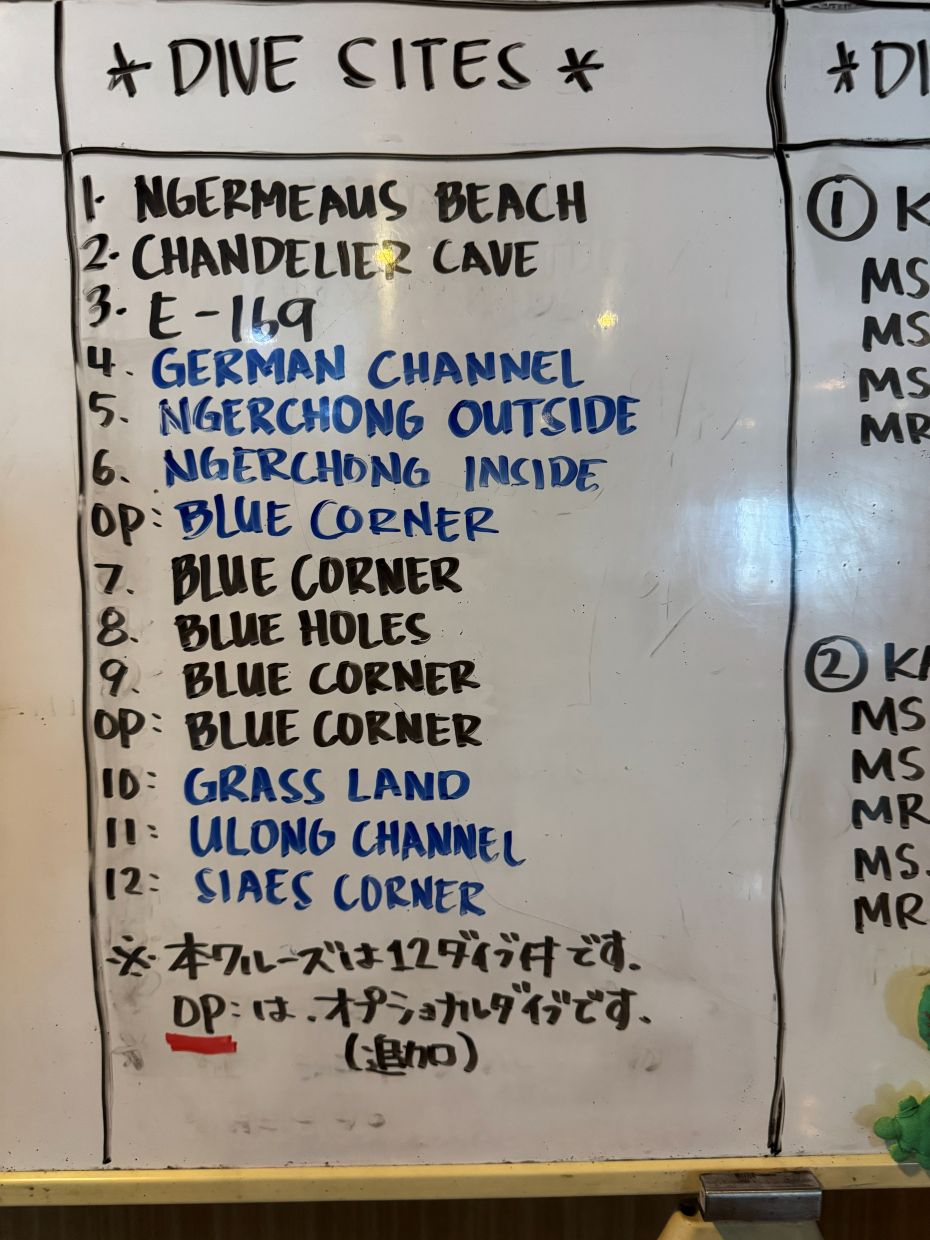 * DIVE SITES *
1. NGERMEAUS BEACH
2. CHANDELIER CAVE
3. E-169
4. GERMAN CHANNEL
5. NGERCHONG OUTSIDE
6. NGERCHONG INSIDE
OP: BLUE CORNER
7. BLUE CORNER
8. BLUE HOLES
9. BLUE CORNER
OP: BLUE CORNER
10: GRASS LAND
11: ULONG CHANNEL
12: SIAES CORNER
※ 本クルーズは12ダイブ付です.
OP: は.オプショナルダイブです.
(追加)
* DI
① K
MS
MS
MS
MR
② KA
MS
MS
MR
MS.
MR